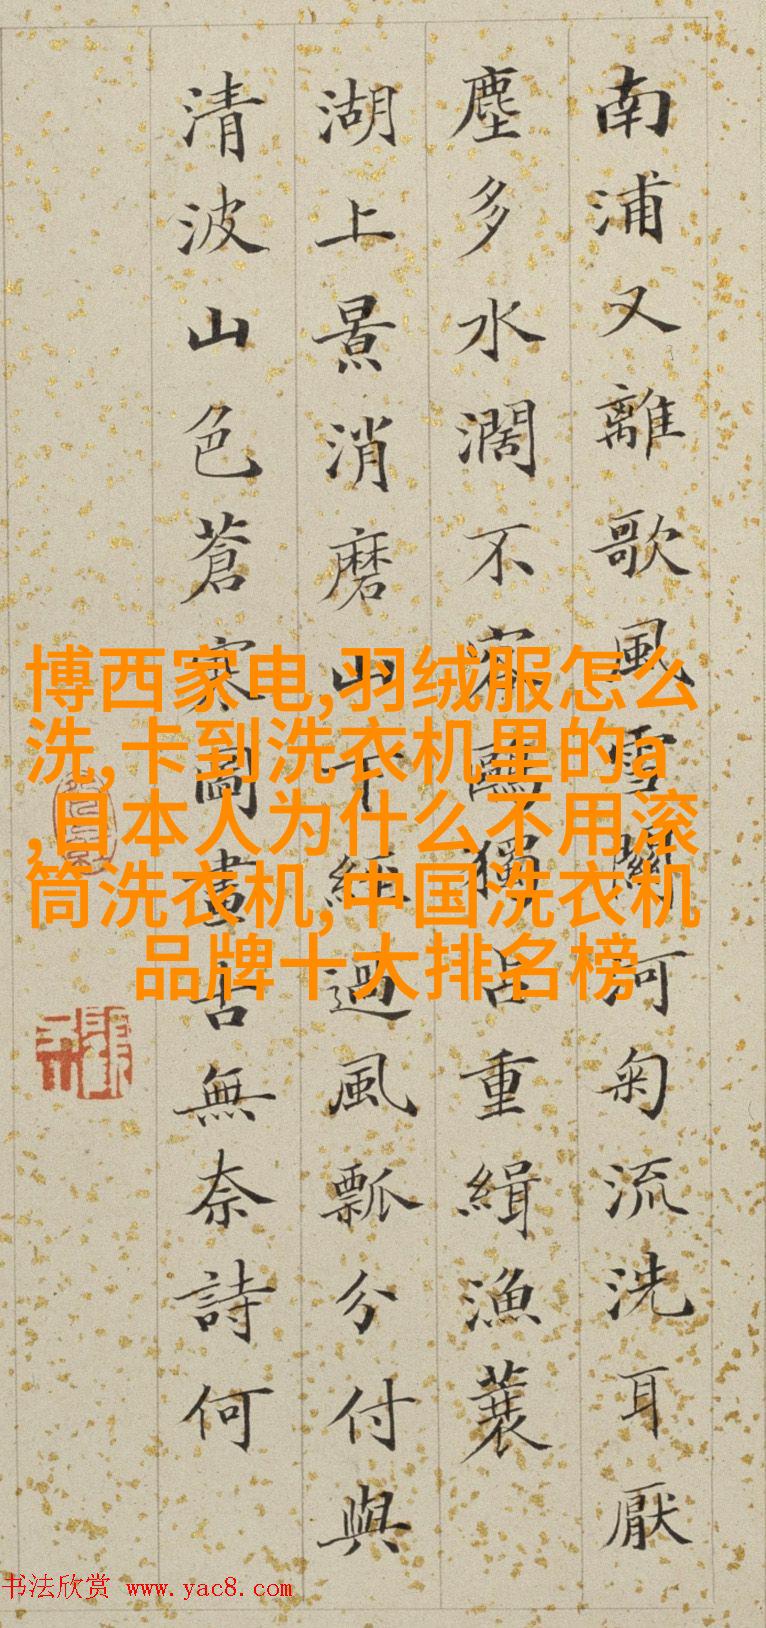 南浦又離歌風雪關河匊流洗耳厭
塵多水濶不容鷗獨占重緝漁蓑
湖上景消磨山下經過風瓢分付與
清波山色蒼寒圖畫古無奈詩何
博西家电,羽绒服怎么
洗,卡到洗衣机里的a
,日本人为什么不用滚
筒洗衣机,中国洗衣机
品牌十大排名榜
书法欣赏 www.yac8.com